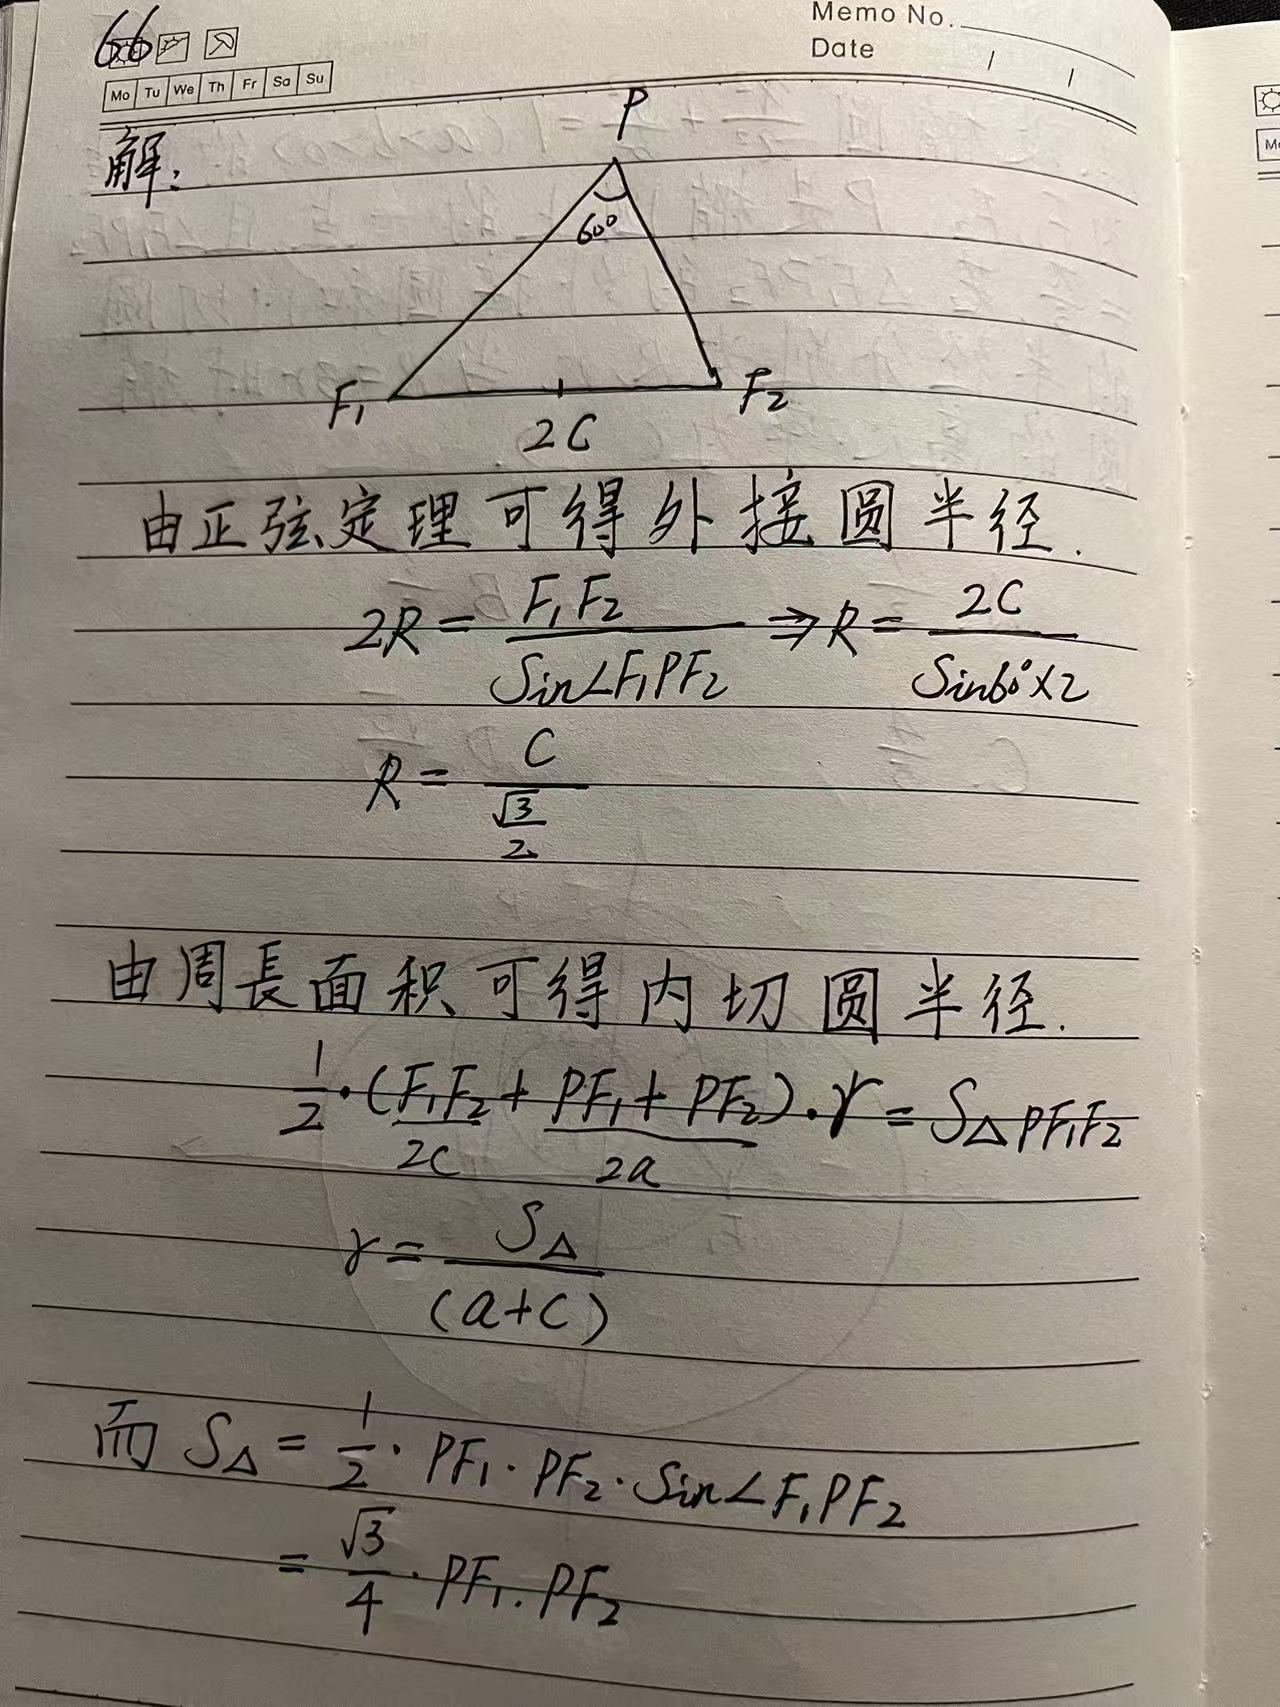 66
Memo No.
Date / /
Mo Tu We Th Fr Sa Su
解:
P
60°
F₁
F₂
2C
由正弦定理可得外接圆半径.
2R = F₁F₂ / Sin∠F₁PF₂ ⇒ R = 2C / Sin60°×2
R = C / (√3/2)
由周長面积可得内切圆半径.
1/2·(F₁F₂ + PF₁ + PF₂)·r = S△PF₁F₂
2C 2a
r = S△ / (a+C)
而 S△ = 1/2·PF₁·PF₂·Sin∠F₁PF₂
= √3/4·PF₁.PF₂